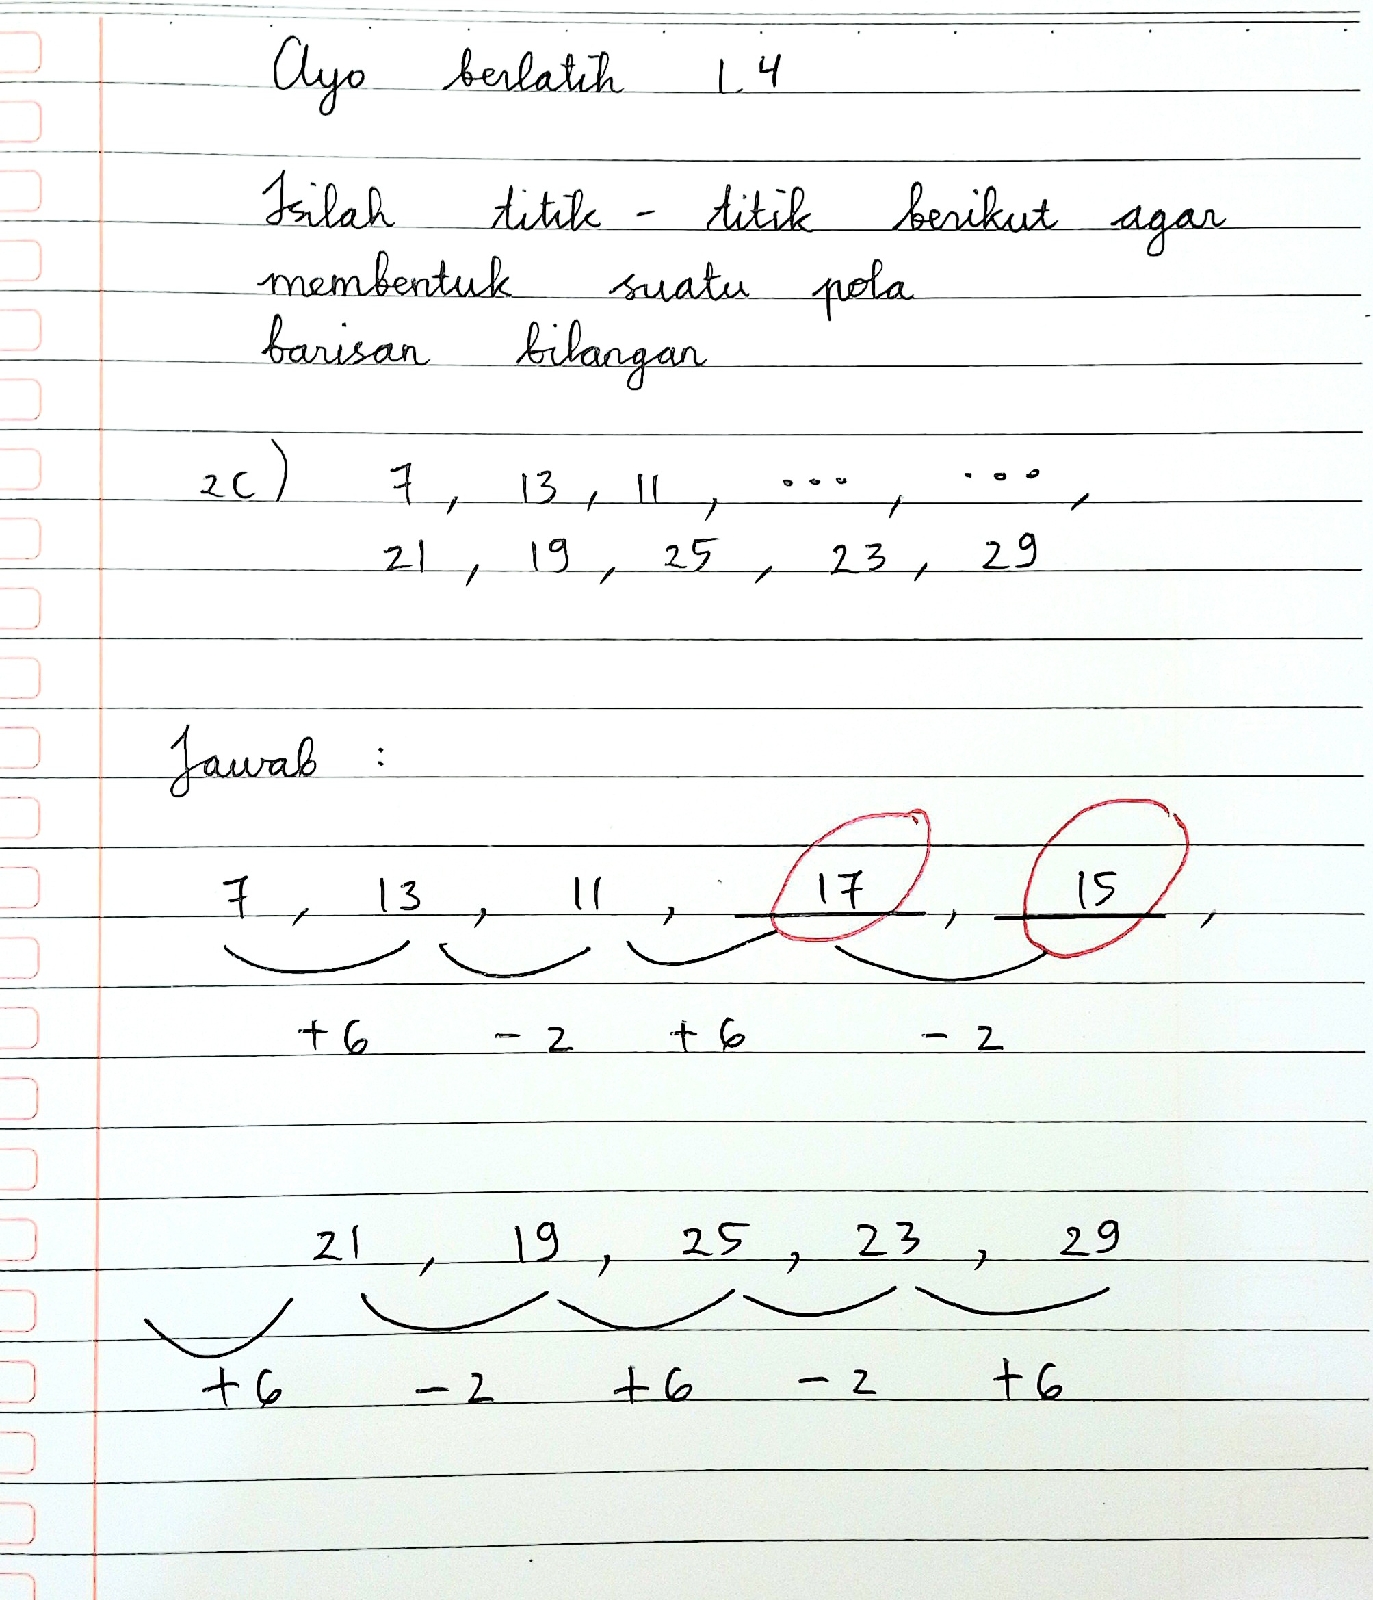 Ayo berlatih 1.4
Isilah titik - titik berikut agar
membentuk suatu pola
barisan bilangan
2c) 7, 13, 11, ..., ...,
21, 19, 25, 23, 29
Jawab :
7, 13, 11, 17, 15,
+6 -2 +6 -2
21, 19, 25, 23, 29
+6 -2 +6 -2 +6